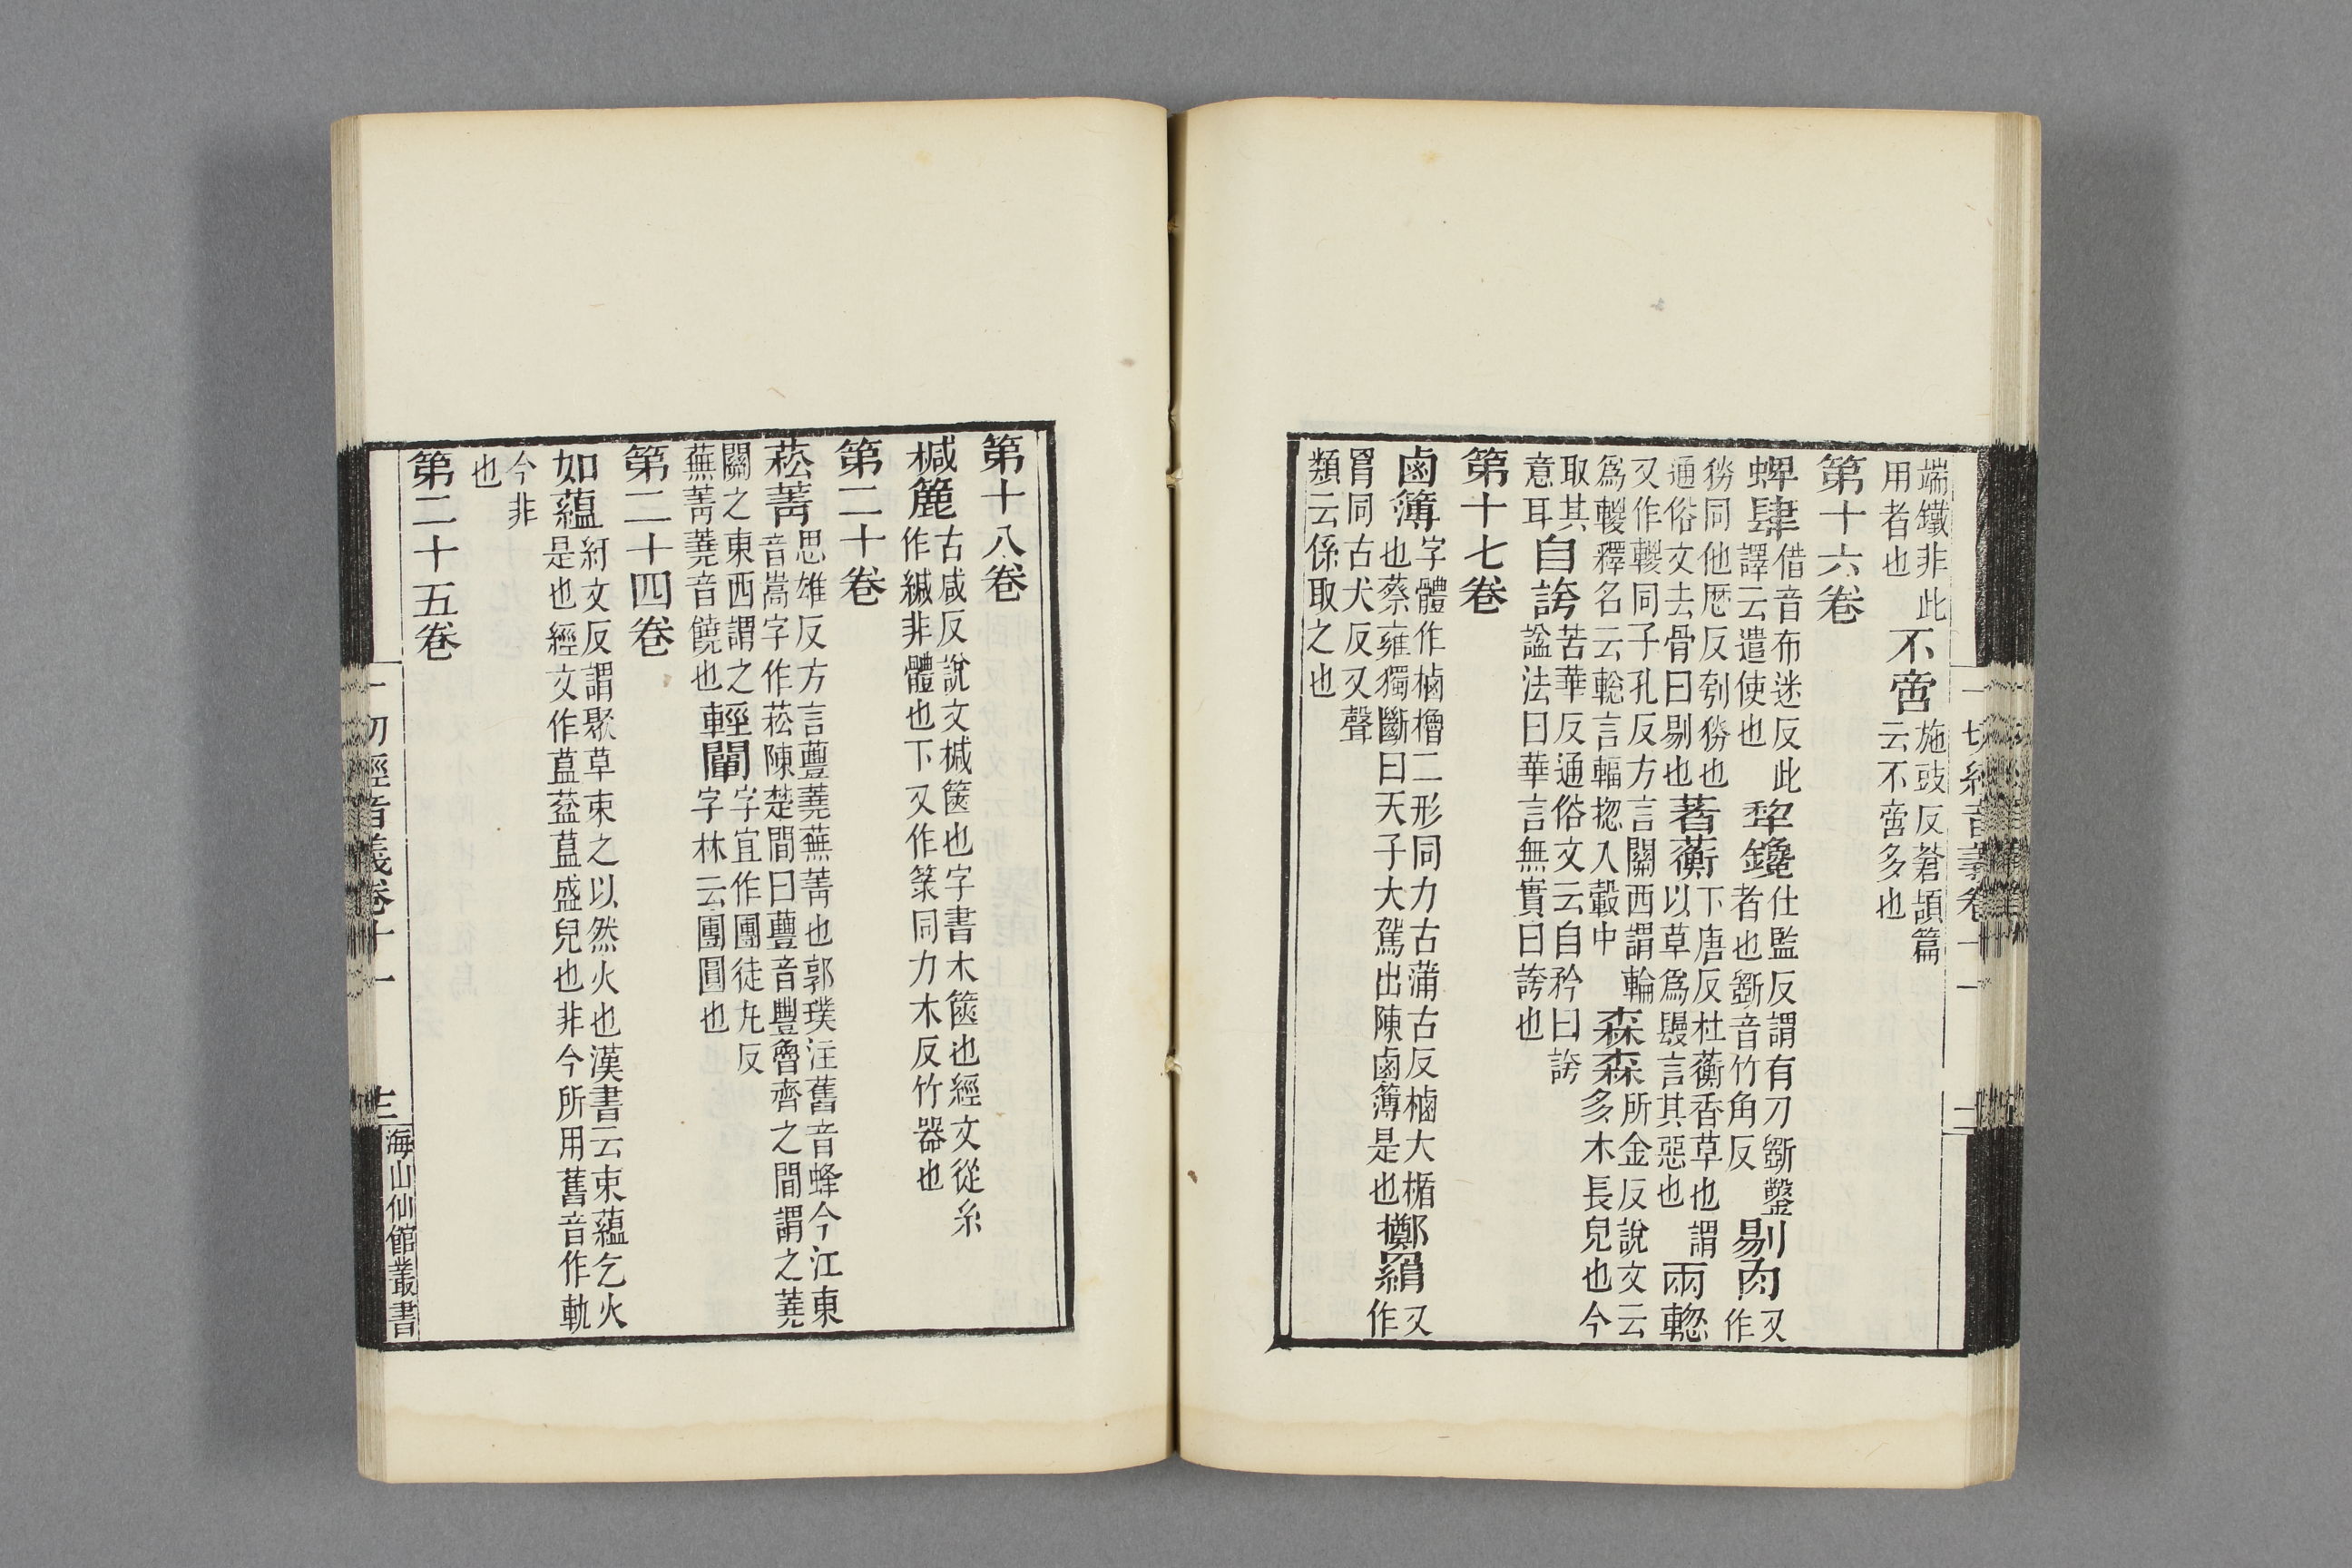 端鐵非此
用者也
不啻
施豉反蒼頡篇
云不啻多也
第十六卷
蜱肆
借音布迷反此
譯云遣使也
犂鑱
仕監反謂有刀斵鑿
者也斵音竹角反
剔肉
又作
𠢕同他厯反剜𠢕也
通俗文去骨曰剔也
著蘅
下唐反杜蘅香草也謂
以草爲䯸言其惡也
兩轗
又作輚同子孔反方言關西謂輪
爲輚釋名云輚言輻揔入轂中
取其
意耳
森森
所金反說文云
多木長皃也今
自誇
苦華反通俗文云自矜曰誇
諡法曰華言無實曰誇也
第十七卷
鹵簿
字體作樐櫓二形同力古蒲古反樐大楯
也蔡雍獨斷曰天子大駕出陳鹵簿是也
擲羂
又
作
罥同古犬反又聲
類云係取之也
一切經音義卷十一
二
第十八卷
椷簏
古咸反說文椷篋也字書木篋也經文從糸
作緘非體也下又作箓同力木反竹器也
第二十卷
菘菁
思雄反方言蘴蕘蕪菁也郭璞注舊音蜂今江東
音嵩字作菘陳楚間曰蘴音豐魯齊之間謂之蕘
關之東西謂之
蕪菁蕘音饒也
輕闡
字宜作團徒九反
字林云團圓也
第二十四卷
如蘊
紆文反謂聚草束之以然火也漢書云束蘊乞火
是也經文作葅葢葅盛皃也非今所用舊音作軌
今非
也
第二十五卷
一切經音義卷十一
三
海山仙館叢書